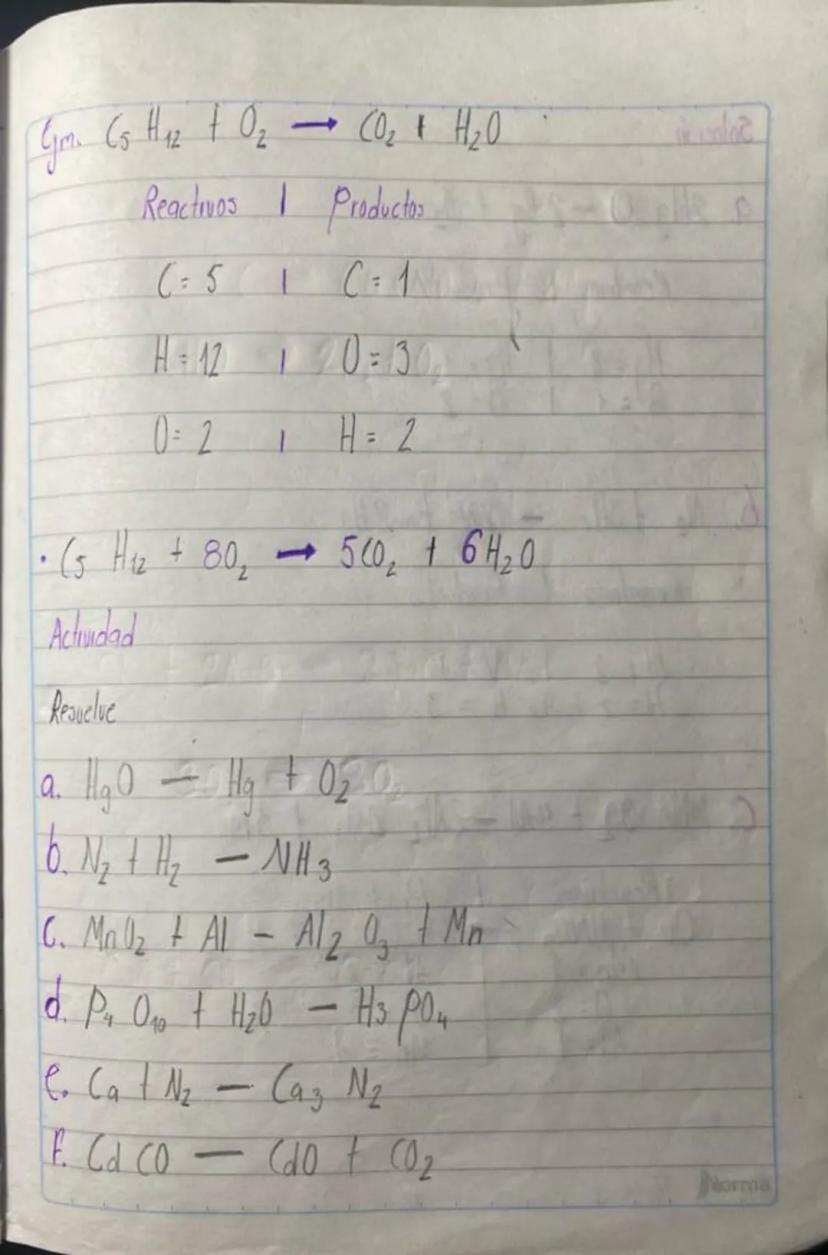 Ejm. C₅ H₁₂ + O₂ → CO₂ + H₂O
Reactivos | Productos
C = 5 | C = 1
H = 12 | O = 3
O = 2 | H = 2
· C₅ H₁₂ + 8O₂ → 5CO₂ + 6H₂O
Actividad
Resuelve
a. HgO — Hg + O₂
b. N₂ + H₂ — NH₃
C. MnO₂ + Al — Al₂ O₃ + Mn
d. P₄ O₁₀ + H₂O — H₃ PO₄
e. Ca + N₂ — Ca₃ N₂
F. Cd CO — CdO + CO₂
Norma